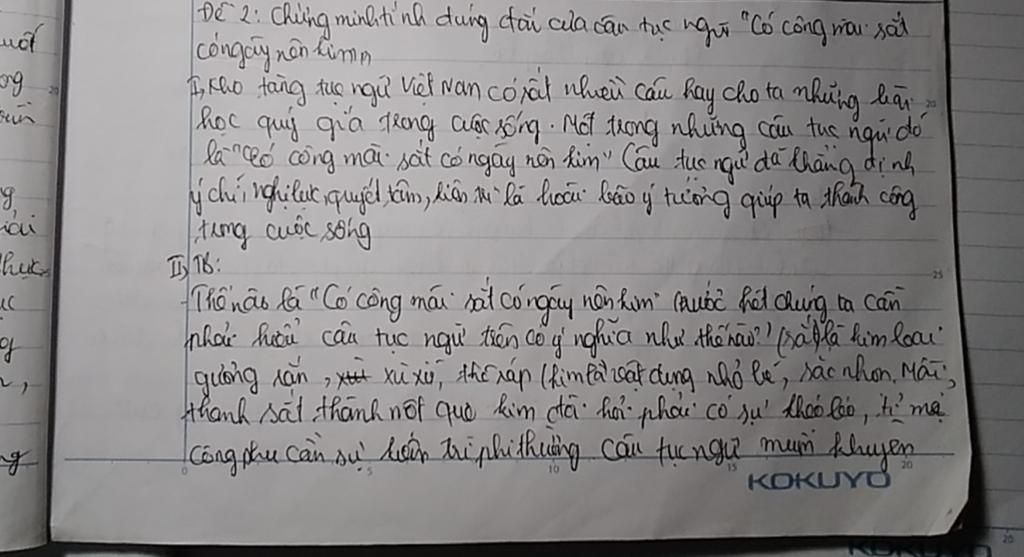 Đề 2: Chứng minh tính đúng đắn của câu tục ngữ "Có công mài sắt
có ngày nên kim
I, Kho tàng tục ngữ Việt Nam có rất nhiều câu hay cho ta những bài
học quý giá trong cuộc sống. Một trong những câu tục ngữ đó
là "Có công mài sắt có ngày nên kim" Câu tục ngữ đã khẳng định
ý chí, nghị lực, quyết tâm, kiên trì là hoài bão ý tưởng giúp ta thành công
trong cuộc sống
II, TB:
Thế nào là "Có công mài sắt có ngày nên kim" trước hết chúng ta cần
phải hiểu câu tục ngữ trên có ý nghĩa như thế nào? (sắt) là kim loại
gương sần, xù xì, thô ráp (kim) là vật dụng nhỏ bé, sắc nhọn. Mài
thanh sắt thành một que kim đòi hỏi phải có sự khéo léo, tỉ mỉ
công phu cần sự kiên trì phi thường câu tục ngữ muốn khuyên
KOKUYO
uốt
ong
g
hực
ng